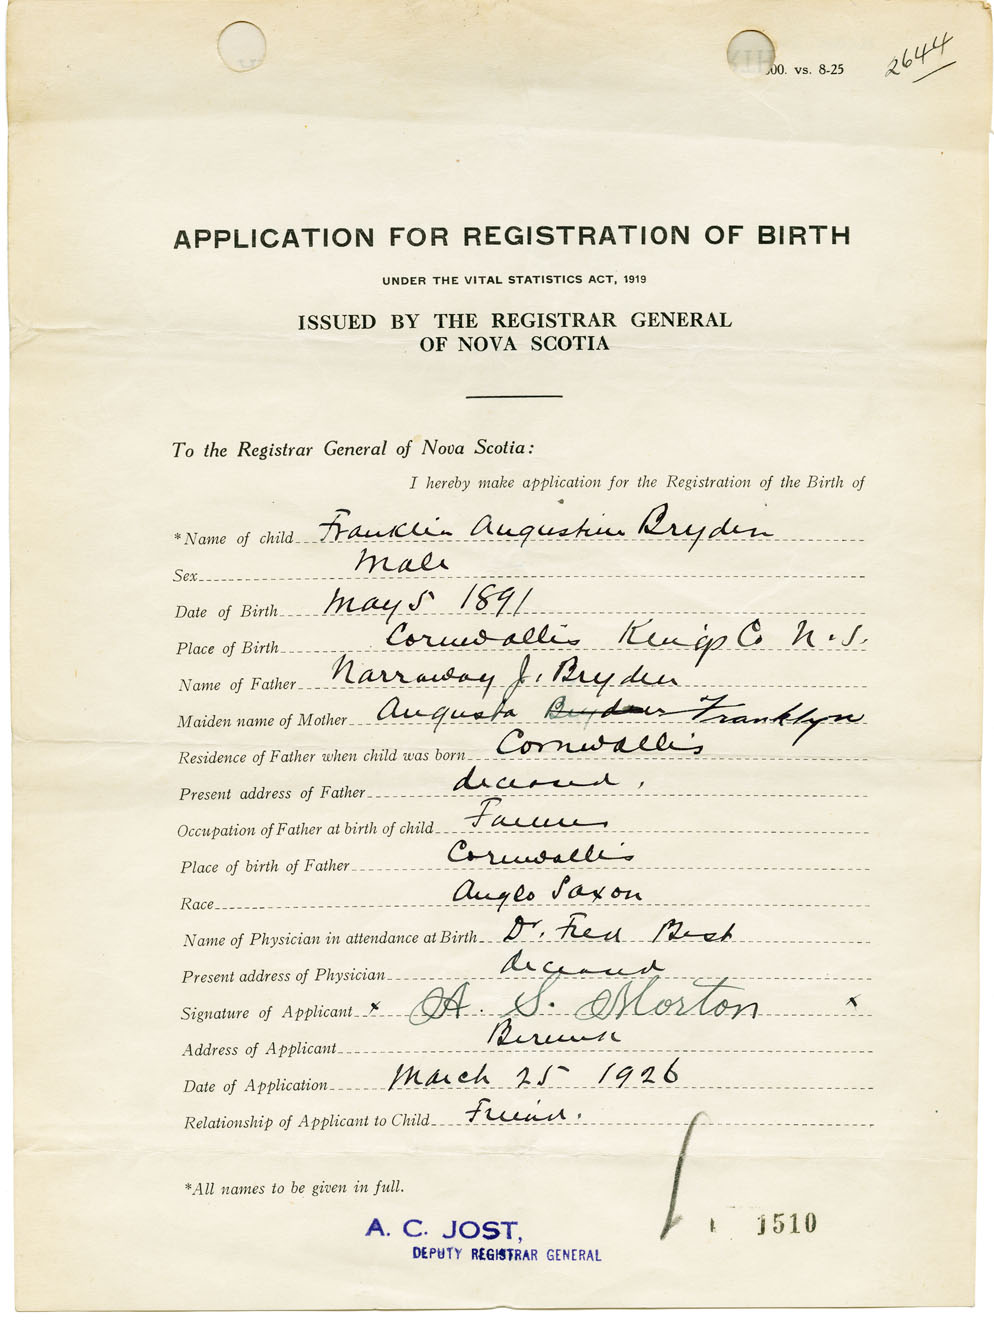 00. vs. 8-25
2644
APPLICATION FOR REGISTRATION OF BIRTH
UNDER THE VITAL STATISTICS ACT, 1919
ISSUED BY THE REGISTRAR GENERAL
OF NOVA SCOTIA
To the Registrar General of Nova Scotia:
I hereby make application for the Registration of the Birth of
*Name of child Franklin Augustine Bryden
Sex Male
Date of Birth May 5 1891
Place of Birth Cornwallis Kings Co N.S.
Name of Father Narraway J. Bryden
Maiden name of Mother Augusta Bryden Franklyn
Residence of Father when child was born Cornwallis
Present address of Father deceased.
Occupation of Father at birth of child Farmer
Place of birth of Father Cornwallis
Race Anglo Saxon
Name of Physician in attendance at Birth Dr. Fred Best
Present address of Physician deceased
Signature of Applicant x A. S. Morton x
Address of Applicant Berwick
Date of Application March 25 1926
Relationship of Applicant to Child Friend.
*All names to be given in full.
A. C. JOST,
DEPUTY REGISTRAR GENERAL
1510